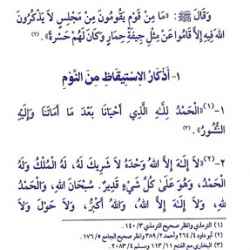 وَقَالَ ﷺ: «مَا مِنْ قَوْمٍ يَقُومُونَ مِنْ مَجْلِسٍ لاَ يَذْكُرُونَ
اللهَ فِيهِ إِلاَّ قَامُوا عَنْ مِثْلِ جِيفَةِ حِمَارٍ وَكَانَ لَهُمْ حَسْرَةً»(٣)
١- أَذْكَارُ الاِسْتِيقَاظِ مِنَ النَّوْمِ
١-(١) «الْحَمْدُ لِلَّهِ الَّذِي أَحْيَانَا بَعْدَ مَا أَمَاتَنَا وَإِلَيْهِ
النُّشُورُ»
٢-(٢) «لاَ إِلَهَ إِلاَّ اللهُ وَحْدَهُ لاَ شَرِيكَ لَهُ، لَهُ الْمُلْكُ وَلَهُ
الْحَمْدُ، وَهُوَ عَلَى كُلِّ شَيْءٍ قَدِيرٌ. سُبْحَانَ اللهِ، وَالْحَمْدُ
للهِ، وَلاَ إِلَهَ إِلاَّ اللهُ، وَاللهُ أَكْبَرُ، وَلاَ حَوْلَ وَلاَ
(١) الترمذي وانظر صحيح الترمذي ٣/١٤٠.
(٢) أبو داود ٤/٢٦٤ وأحمد ٢/٣٨٩ وانظر صحيح الجامع ٥/١٧٦.
البخاري مع الفتح ١١/١١٣ ومسلم ٤/٢٠٨٣.